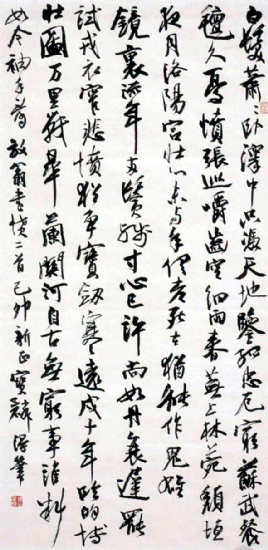 白髮蕭々卧澤中只憑天地鑒孤忠厄窮蘇武餐
氈久憂憤張巡嚼齒空細雨春蕪上林苑頹垣
夜月洛陽宮壯心未与年俱老死去猶能作鬼雄
鏡裏流年兩鬢殘寸心已許尚如丹衰遲罷
試戎衣窄悲憤猶爭寶劍寒遠戍十年臨的博
壯圖万里戰皋蘭關河自古無窮事誰料
如今袖手看 放翁書憤二首己卯新正寶麟筆